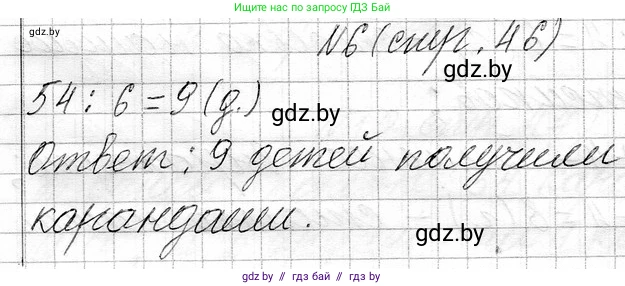 Пишите нас по запросу ГДЗ Бай
gdz.by
№6 (стр. 46)
gdz.by
54 : 6 = 9 (д.)
gdz.by
Ответ : 9 детей получили
карандаши.
gdz.by
gdz.by // гдз бай // gdz.by